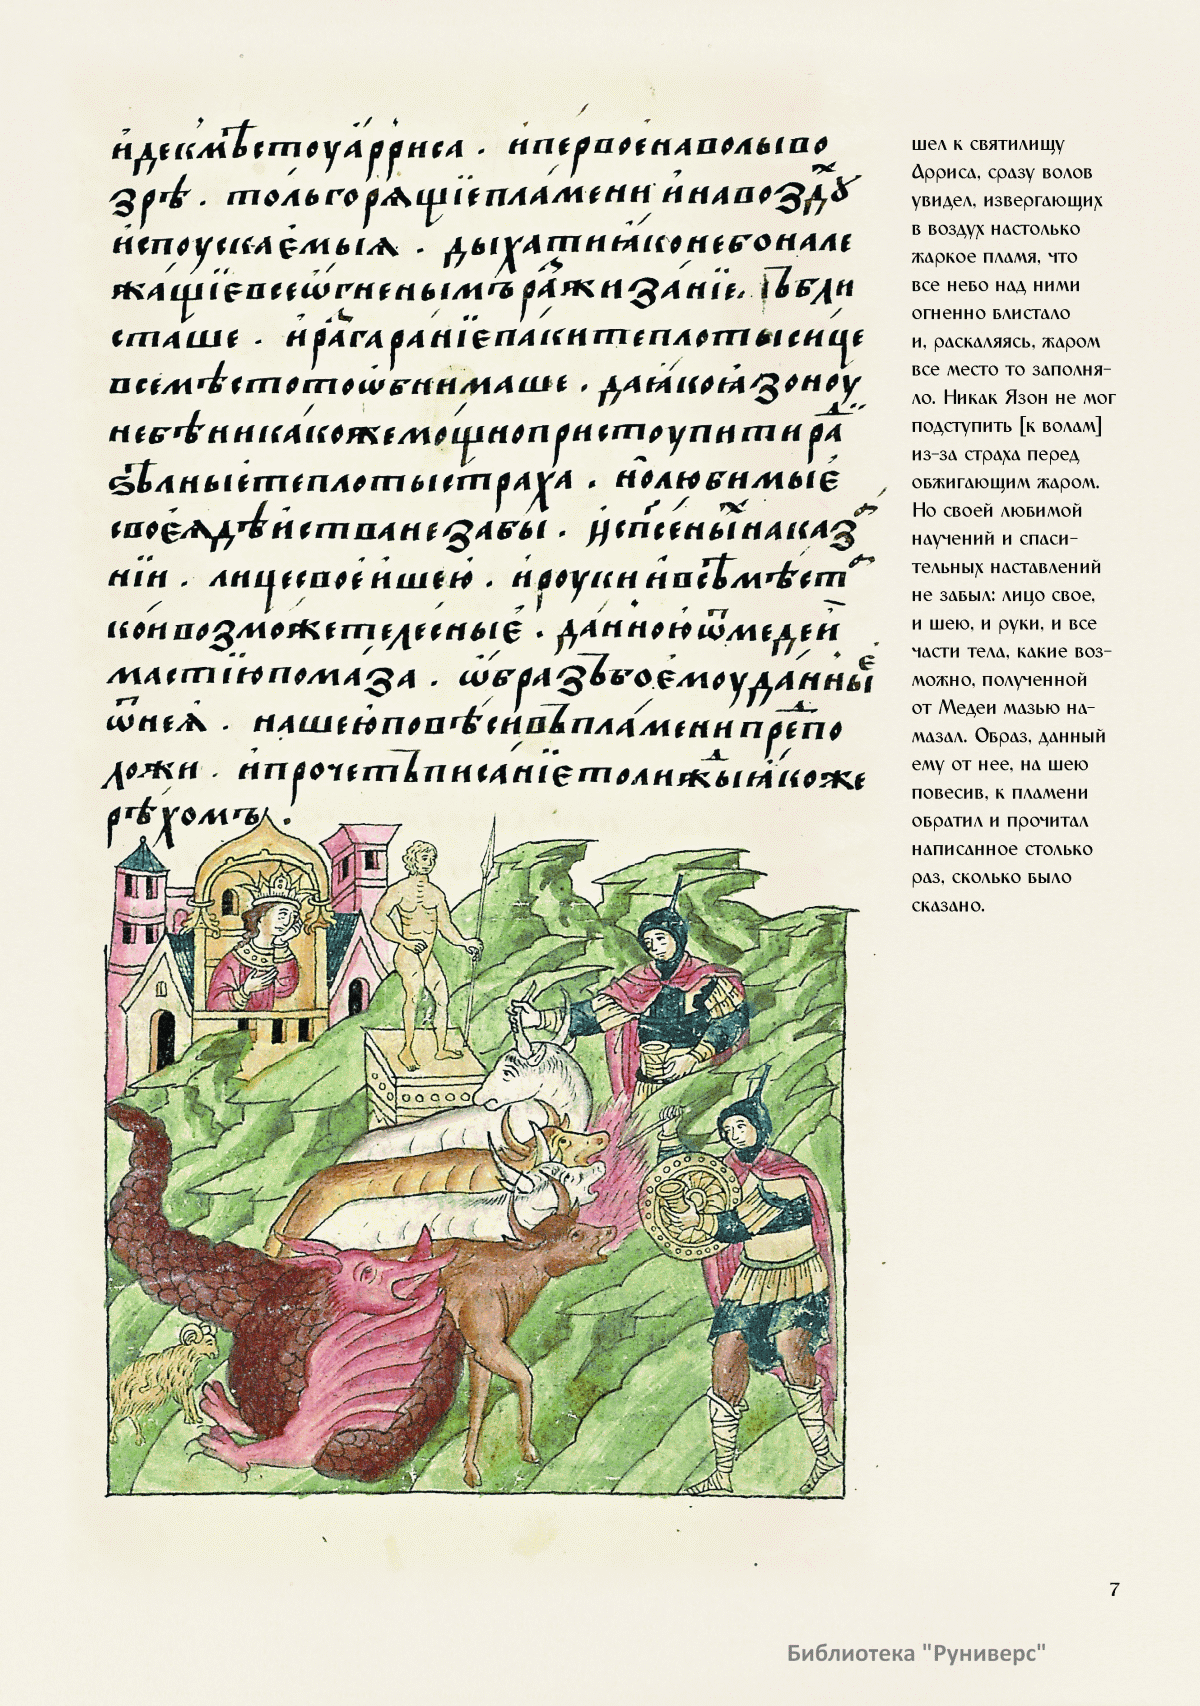 и҆де к мѣсту а҆рриса . и҆ первое на волы во
зрѣ . толь горѧщїе пламени и҆ на воздꙋ
и҆спускаемыѧ . дыхати ꙗ҆ко небо нале
жащїе все ѡ҆гненымъ ражизанїе. бли
сташе . и҆ рагаранїе паки теплоты сице
все мѣсто то ѡ҆бнимаше . да ꙗ҆ко ꙗ҆зону
не бѣ никако же мощно приступити ра
ѕѣлные теплоты страха . но любимые
своеѧ дѣйства не забы . и҆ сп҃сены наказ
нїи . лице свое и҆ шею . и҆ руки и҆ всѣ мѣст
кои возможе телесные . данною ѿ медеи
мастїю помаза . ѡ҆бразъ ему данные
ѿ неѧ . на шею повѣси въ пламени препо
ложи . и҆ прочетъ писанїе толижды ꙗ҆коже
рѣхомъ .
шел к святилищу
Арриса, сразу волов
увидел, извергающих
в воздух настолько
жаркое пламя, что
все небо над ними
огненно блистало
и, раскаляясь, жаром
все место то заполня-
ло. Никак Язон не мог
подступить [к волам]
из-за страха перед
обжигающим жаром.
Но своей любимой
научений и спаси-
тельных наставлений
не забыл: лицо свое,
и шею, и руки, и все
части тела, какие воз-
можно, полученной
от Медеи мазью на-
мазал. Образ, данный
ему от нее, на шею
повесив, к пламени
обратил и прочитал
написанное столько
раз, сколько было
сказано.
7
Библиотека "Руниверс"